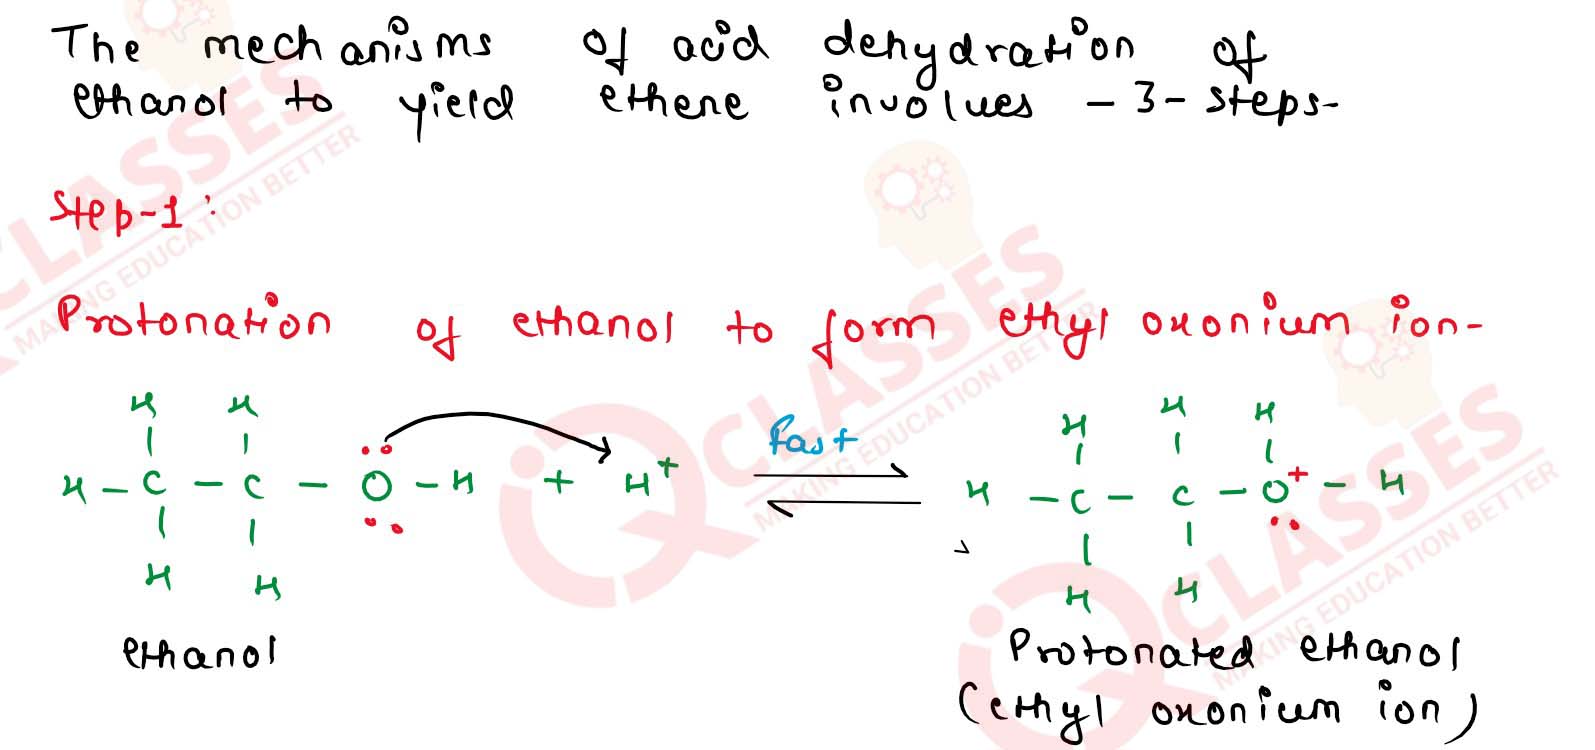 The mechanisms of acid dehydration of
ethanol to yield ethene involves - 3 - steps-
Step-1:
Protonation of ethanol to form ethyl oxonium ion-
H H H H H
Fast
H - C - C - O - H + H+ H - C - C - O+ - H
H H H H
ethanol Protonated ethanol
(ethyl oxonium ion)
CLASSES
MAKING EDUCATION BETTER
CLASSES
MAKING EDUCATION BETTER
CLASSES
MAKING EDUCATION BETTER